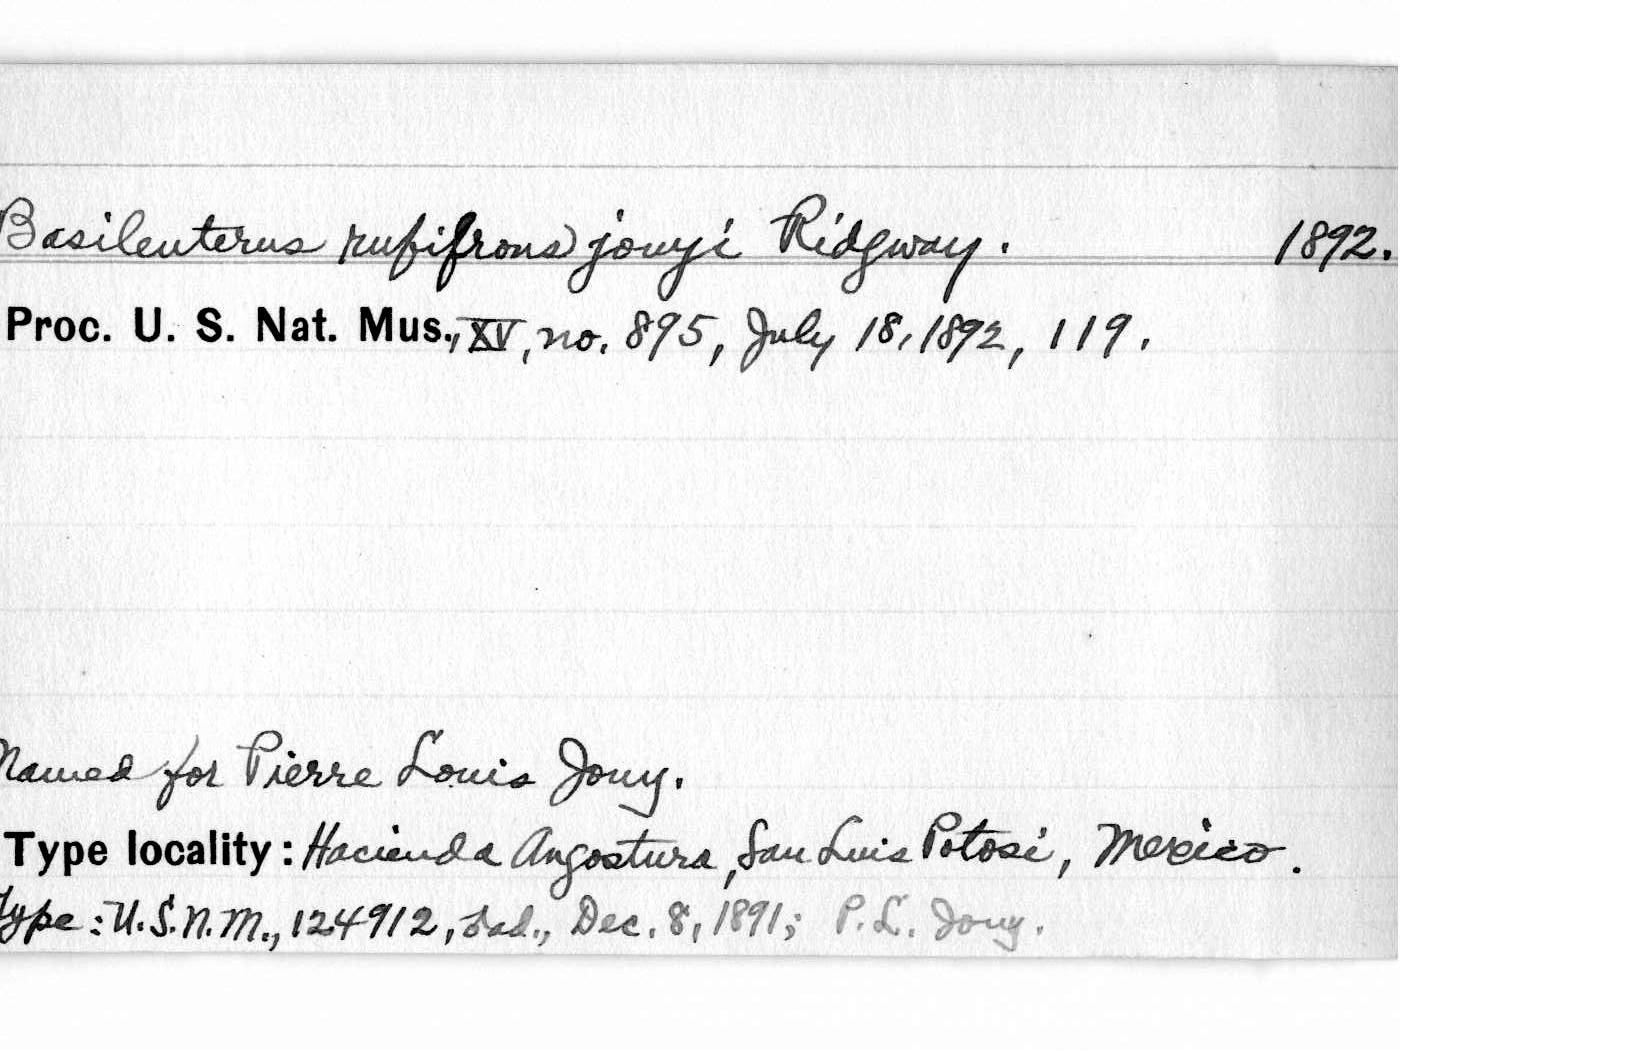 Basileuterus rufifrons jouyi Ridgway. 1892.
Proc. U. S. Nat. Mus., XV, no. 895, July 18, 1892, 119.
Named for Pierre Louis Jouy.
Type locality: Hacienda Angostura, San Luis Potosi, Mexico.
Type: U.S.N.M., 124912, ♂ad., Dec. 8, 1891; P.L. Jouy.